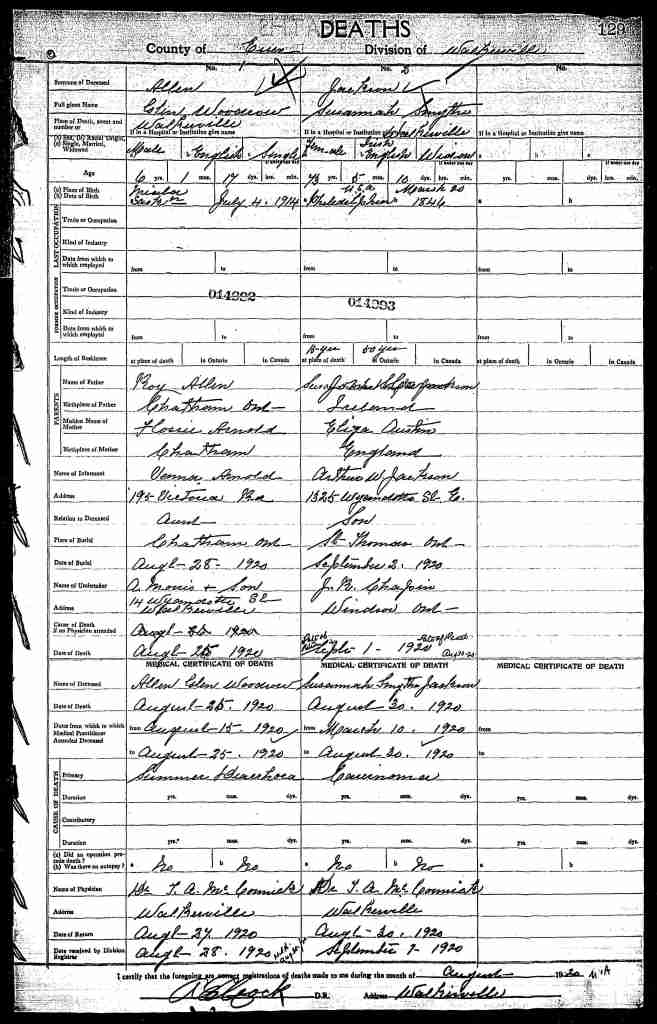 DEATHS
129
County of Essex Division of Walkerville
No. 1 No. 2 No.
Surname of Deceased Allen Jackson
Full given Name Glen Woodrow Susannah Smythe
Place of Death, street and number or Walkerville Walkerville
If in a Hospital or Institution give name If in a Hospital or Institution give name If in a Hospital or Institution give name
Single, Married, Widowed Male English Single Female Irish English Widow
Age 6 yrs. mos. 17 dys. hrs. min. 73 yrs. 5 mos. 10 dys. hrs. min. yrs. mos. dys. hrs. min.
(a) Place of Birth U.S.A. March 20
(b) Date of Birth July 4. 1914 Philadelphia 1846
LAST OCCUPATION
Trade or Occupation
Kind of Industry
Date from which to which employed from to from to from to
FORMER OCCUPATION
Trade or Occupation
014992 014993
Kind of Industry
Date from which to which employed from to from to from to
50 yrs
Length of Residence at place of death in Ontario in Canada at place of death in Ontario in Canada at place of death in Ontario in Canada
PARENTS
Name of Father Roy Allen Jackson
Birthplace of Father Chatham Ont Ireland
Maiden Name of Mother Flossie Arnold Eliza Austin
Birthplace of Mother Chatham England
Name of Informant Verna Arnold Arthur W Jackson
Address 195 Victoria Rd 1325 Wyandotte St. E.
Relation to Deceased Aunt Son
Place of Burial Chatham Ont St Thomas Ont
Date of Burial Augt 28. 1920 September 2. 1920
Name of Undertaker A. Morris & Son
Address 14 Wyandotte St Walkerville Windsor Ont
Cause of Death if no Physician attended Augt 1920
Date of Death Augt 25 1920 Septr 1 - 1920 Date of Death
MEDICAL CERTIFICATE OF DEATH MEDICAL CERTIFICATE OF DEATH MEDICAL CERTIFICATE OF DEATH
Name of Deceased Allen Glen Woodrow Susannah Smythe Jackson
Date of Death August 25. 1920 August 30. 1920
Dates from which to which Medical Practitioner Attended Deceased from August 15. 1920 from March 10. 1920 from
to August 25. 1920 to August 30. 1920 to
CAUSE OF DEATH
Primary Summer Diarrhoea Carcinoma
Duration yrs. mos. dys. yrs. mos. dys. yrs. mos. dys.
Contributory
Duration yrs. mos. dys. yrs. mos. dys. yrs. mos. dys.
(a) Did an operation precede death?
(b) Was there an autopsy? a No b No a No b No a b
Name of Physician Dr T. A. McCormick Dr T. A. McCormick
Address Walkerville Walkerville
Date of Return Augt 27 1920 Augt 30. 1920
Date received by Division Registrar Augt 28. 1920 September 2 1920
I certify that the foregoing are correct registrations of deaths made to me during the month of August 1920
D.R. Address Walkerville